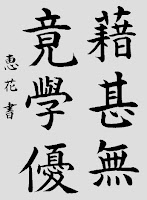 藉甚無
竟學優
惠花書